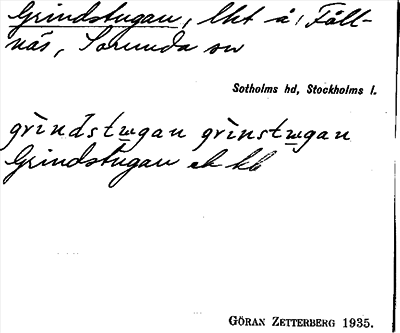 Grindstugan, lht å, Fåll-
näs, Sorunda sn
Sotholms hd, Stockholms l.
grìndstωgan grìnstωgan
Grindstugan ek kb
GÖRAN ZETTERBERG 1935.